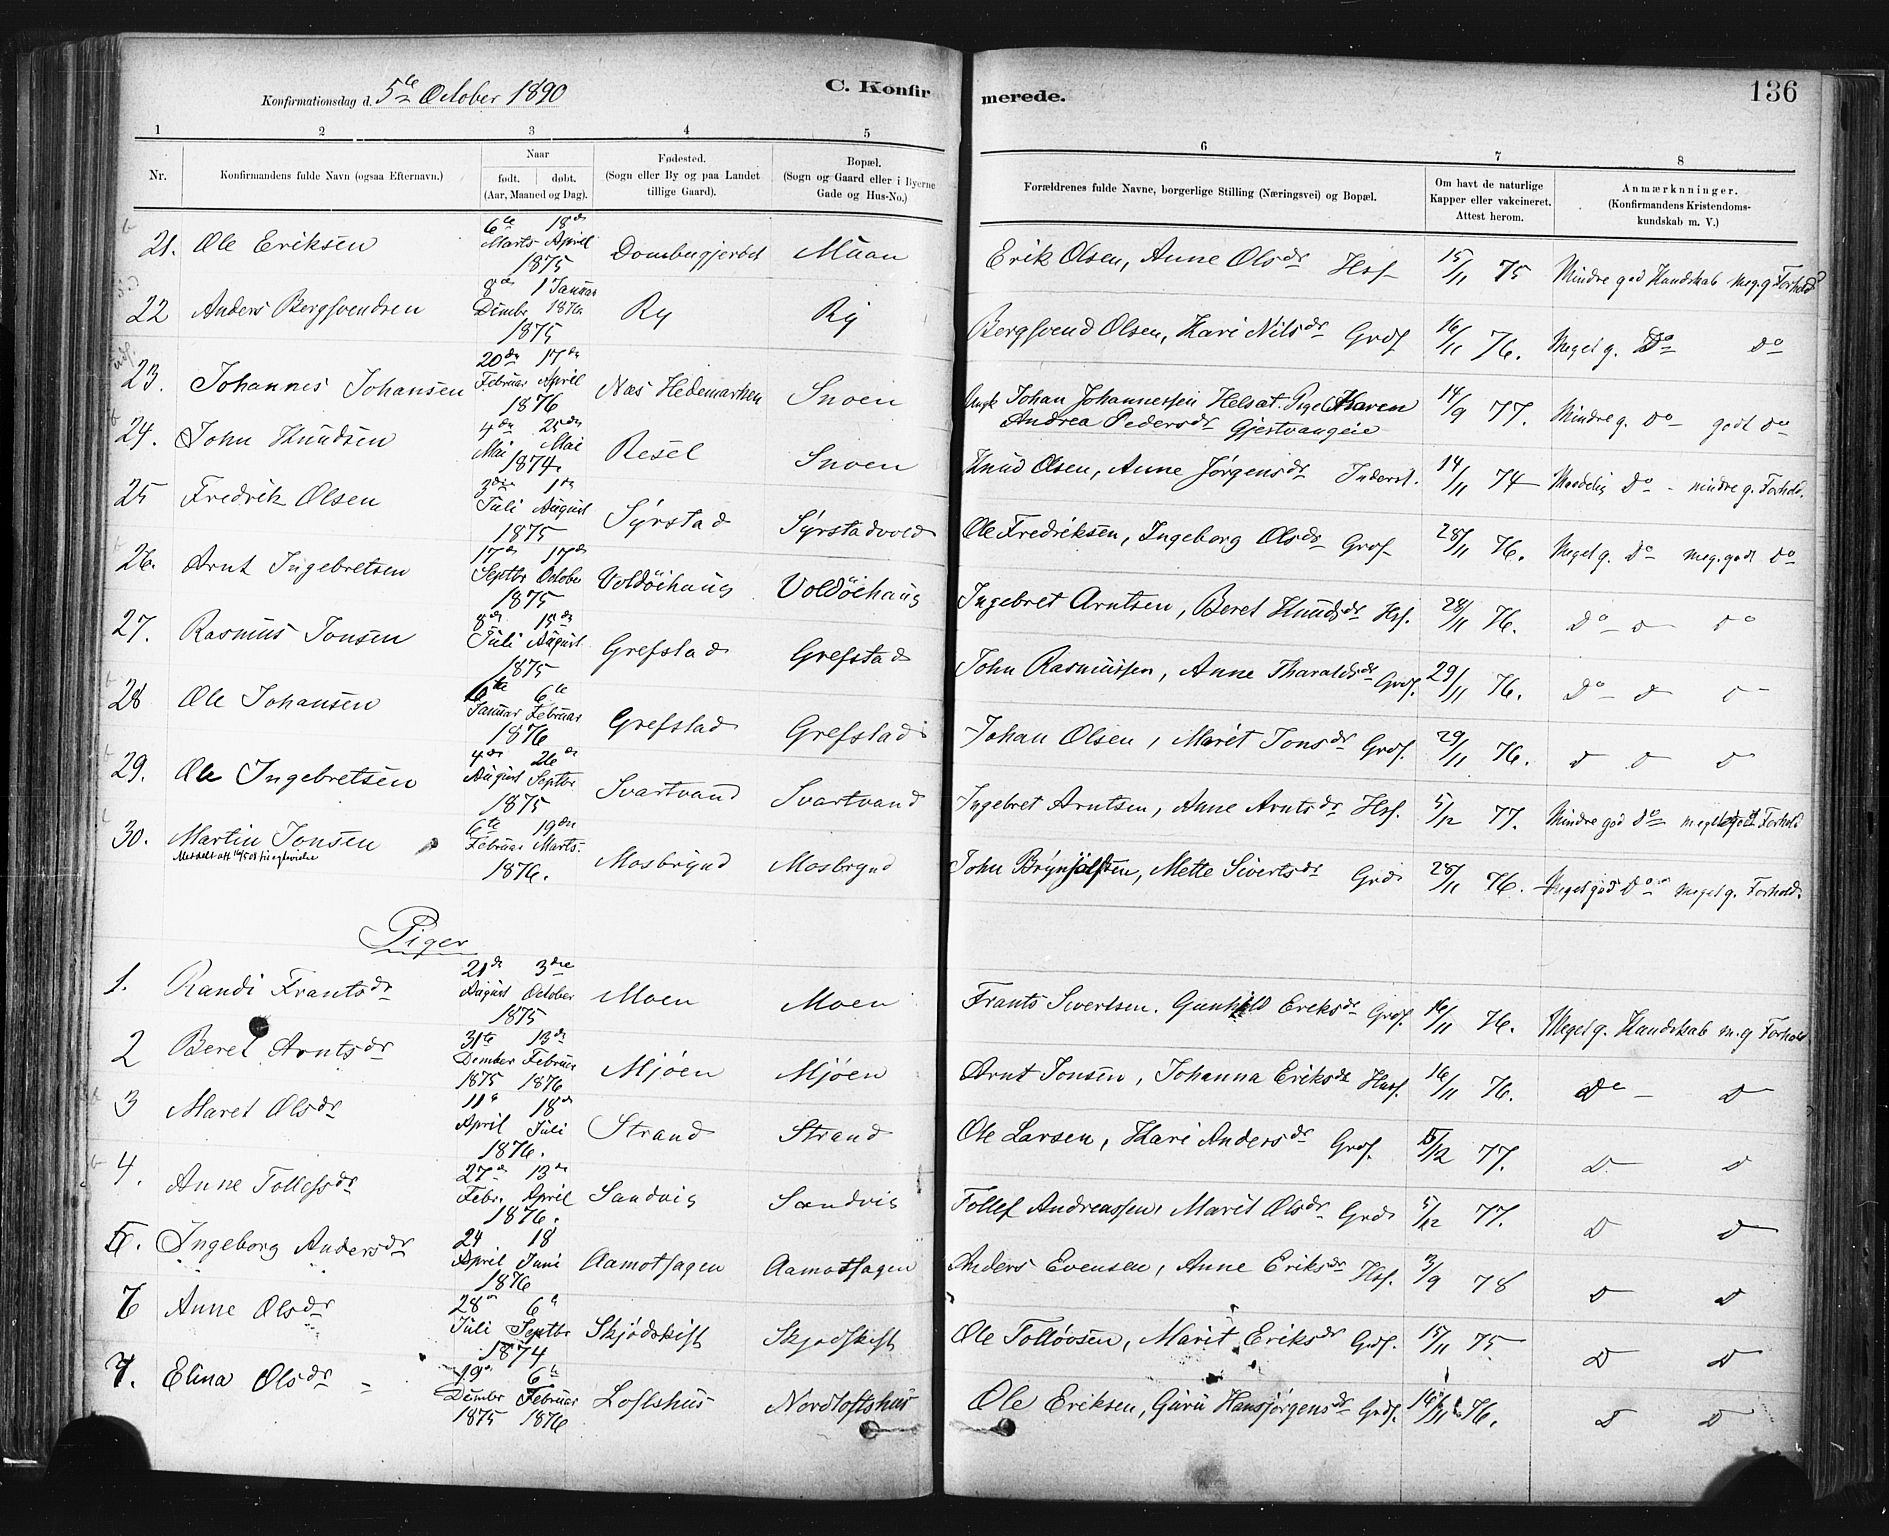 Konfirmationsdag d. 5te October 1890 C. Konfirmerede. 136
1 2 3 4 5 6 7 8
Nr. Konfirmandens fulde Navn (ogsaa Efternavn). Naar født. døbt. (Aar, Maaned og Dag). Fødested. (Sogn eller By og paa Landet tillige Gaard). Bopæl. (Sogn og Gaard eller i Byerne Gade og Hus-No.) Forældrenes fulde Navne, borgerlige Stilling (Næringsvei) og Bopæl. Om havt de naturlige Kapper eller vakcineret. Attest herom. Anmærkninger. (Konfirmandens Kristendomskundskab m. V.)
21. Ole Eriksen 6te Marts 18de April 1875 Muan Erik Olsen, Anne Olsdr Hsf 15/11 75 Mindre god Kundskab meg. g Forhold
22 Anders Bergsvendsen 8de Dcmbr 1875 1 Januar 1876 Ry Ry Bergsvend Olsen, Kari Nilsdr Grdf. 16/11 76. Meget g. Do do
23. Johannes Johansen 20de Februar 17de April 1876 Næs Hedemarken Snoen Ungk Johan Johannessen Helsat. Pige Karen Andrea Pedersdr 14/9 77. Mindre g. Do godt do
24. John Knudsen 4de Mai 25de Mai 1874 Resel Snoen Knud Olsen, Anne Jørgensdr Inderst. 14/11 74 Maadelig Do - mindre g. Forhold.
25 Fredrik Olsen 3die Juli 1ste August 1875 Syrstad Syrstadvold Ole Fredriksen, Ingeborg Olsdr Grdf 28/11 76. Meget g. Do meg. godt do
26. Arnt Ingebretsen 17de Septbr 17de Octobe 1875 Voldöihaug Voldöihaug Ingebret Arntsen, Beret Knudsdr Hsf. 28/11 76. Do d do
27. Rasmus Jonsen 8de Juli 15de August 1875 Grefstad Grefstad John Rasmussen, Anne Tharaldsdr Grdf. 29/11 76. Do d
28 Ole Johansen 6te Januar 6te Februar 1876 Grefstad Grefstad Johan Olsen, Marit Jonsdr Grdf. 29/11 76. d d d
29. Ole Ingebretsen 4de August 26de Septbr 1875 Svartvand Svartvand Ingebret Arntsen, Anne Arntsdr Hsf. 5/12 77. Mindre god do meget godt Forhold
30. Martin Jonsen 6te Februar 19de Marts. 1876. Mosbrynd Mosbrynd John Brynjolfsen, Mette Sivertsdr Grd 28/11 76. Meget god Do meget g. Forhold.
Piger
1. Randi Frantsdr 21de August 3die October 1875 Moen Moen Frants Sivertsen. Gunhild Eriksdr Grdf. 16/11 76. Meget g. Kundskab m. g Forhold.
2 Beret Arntsdr 31te Dcmber 1875 13de Februar 1876 Mjöen Mjöen Arnt Jonsen, Johanna Eriksdr Husf. 16/11 76. Do D
3 Maret Olsdr 11te April 18de Juli 1876. Strand Strand Ole Larsen, Kari Andersdr Grdf. 5/12 77. D D
4. Anne Tollefsdr 27de Febr. 13de April 1876. Sandvig Sandvig Tollef Andreassen, Marit Olsdr Grd 5/12 77. D D
5. Ingeborg Andersdr 24 April 18 Juni 1876 Aamotsagen Aamotsagen Anders Evensen, Anne Eriksdr Hsf. 3/9 78 D D
6 Anne Olsdr 28de Juli 6te Septbr 1874 Skjødskift Skjodskift Ole Tolløvsen, Marit Eriksdr Grdf. 15/11 75 D D
7. Elina Olsdr 19de Dcmber 1875 6te Februar 1876 Loftshus Nordloftshus Ole Eriksen, Guru Hansjørgensdr Grdf. 16/11 76. D D